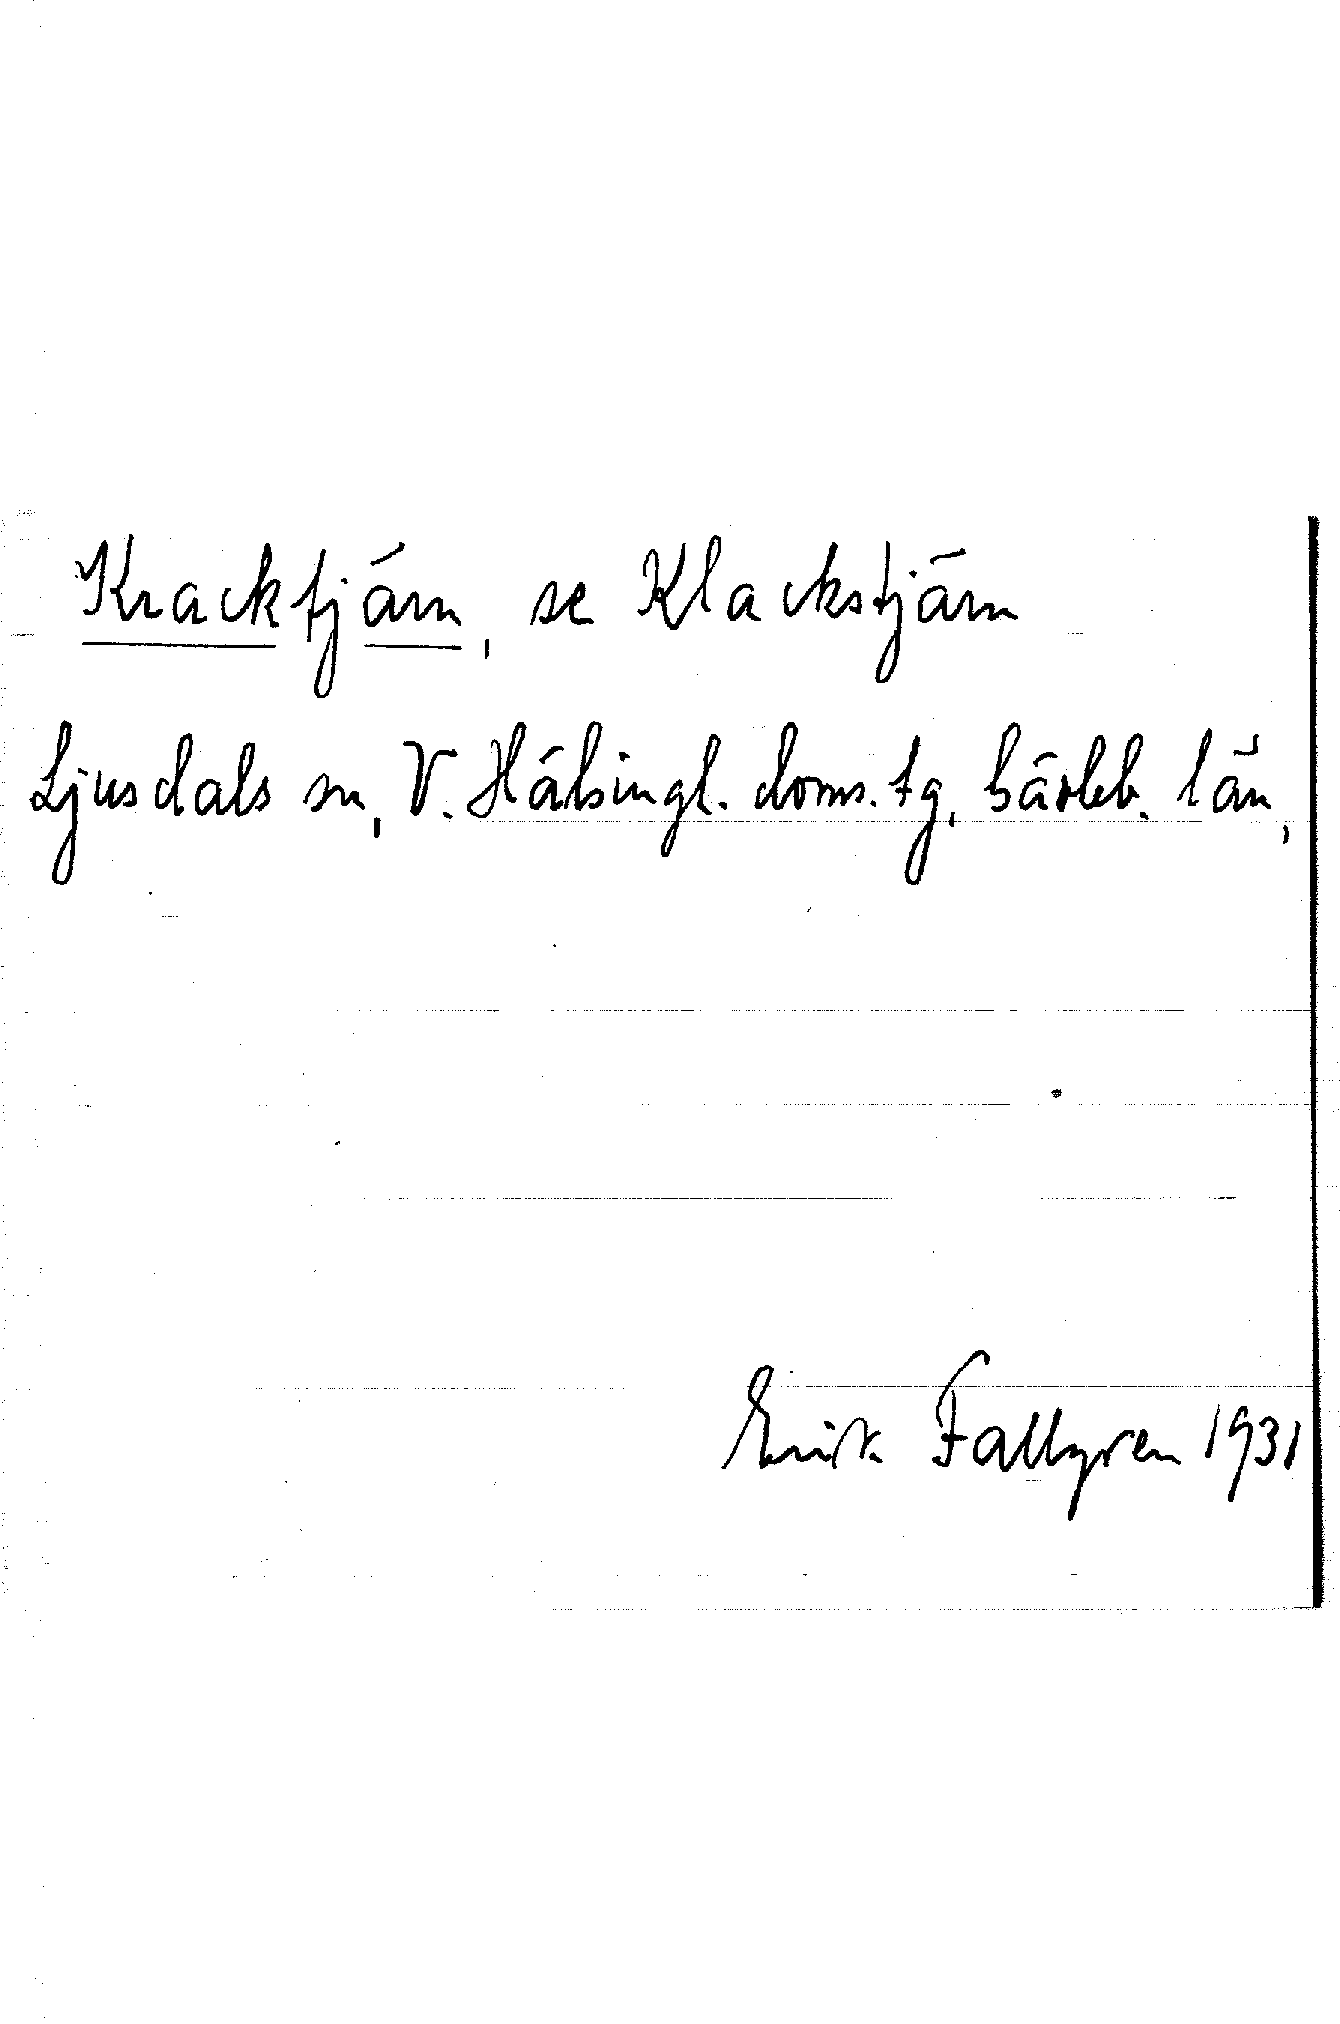 Kracktjärn, se Klackstjärn
Ljusdals sn, V. Hälsingl. doms. tg, Gävleb. län,
Erik Fallgren 1931